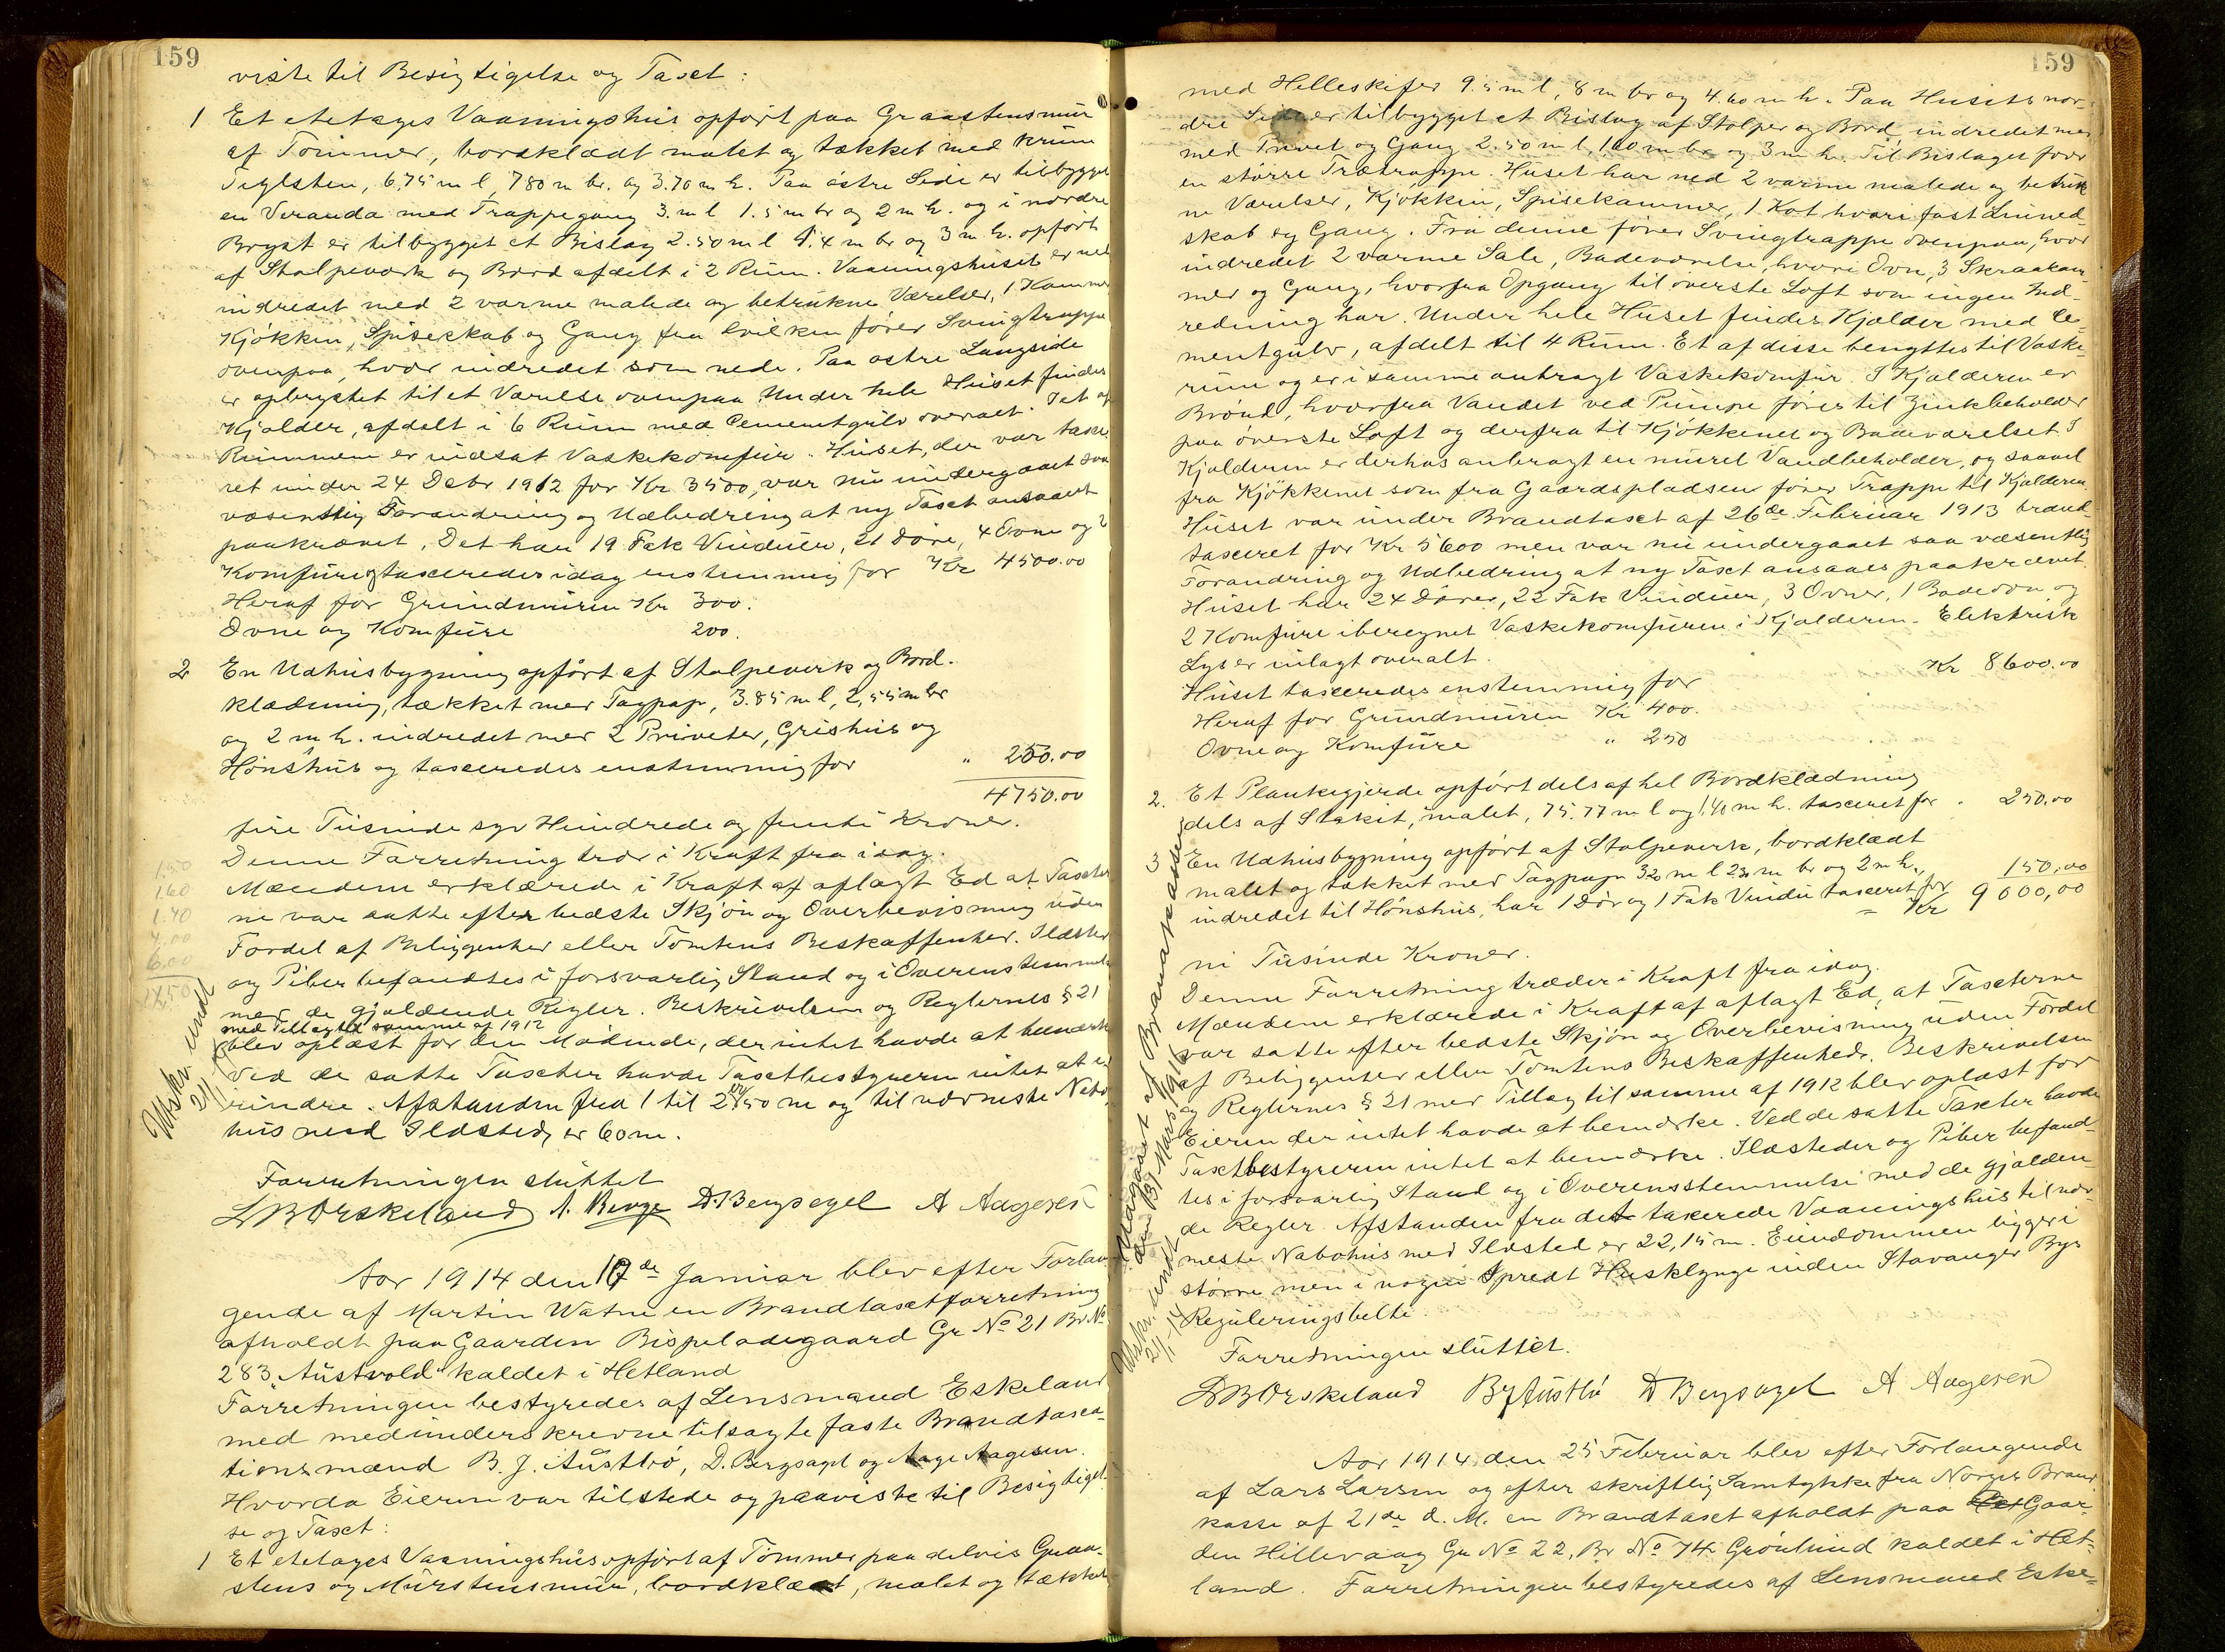 159
viste til Besigtigelse og Taxt:
1 Et etetages Vaaningshus opført paa Graastensmur
af Tømmer, bordklædt malet og tækket med krum
Teglsten, 6,75 m l 7.80 m br. og 3.70 m h. Paa østre Side er tilbygget
en Veranda med Trappegang 3. m l 1.5 m br og 2 m h. og i nordre
Bryst er tilbygget et Bislag 2.50 m l 1.4 m br og 3 m h. opført
af Stolpeværk og Bord afdelt i 2 Rum. Vaaningshuset er ned
indredet med 2 varme malede og betrukne Værelser, 1 Kammer
Kjøkken, Spiseskab og Gang fra hvilken fører Svingtrappe
ovenpaa, hvor indredet som nede. Paa østre Langside
er opbrystet til et Værelse ovenpaa. Under hele Huset findes
Kjælder, afdelt i 6 Rum med Cementgulv overalt. I et af
Rummene er indsat Vaskekomfur. Huset, der var taxe
ret under 24 Debr 1912 for Kr 3500, var nu undergaaet saa
væsentlig Forandring og Udbedring at ny Taxt ansaaes
paakrævet. Det har 19 Fak Vinduer, 21 Døre, 4 Ovne og 2
Komfure og taxeredes idag enstemmig for Kr 4500.00
Heraf for Grundmuren Kr 300.
Ovne og Komfure 200.
2 En Udhusbygning opført af Stolpeverk og Bord-
klædning, tækket med Tagpap, 3.85 m l, 2,55 m br
og 2 m h. indredet med 2 Priveter, Grishus og
Hønshus og taxeredes enstemmig for " 250.00
4750.00
fire Tusinde syv Hundrede og femti Kroner.
Denne Forretning træder i Kraft fra idag.
Mændene erklærede i Kraft af aflagt Ed at Taxter
ne var satte efter bedste Skjøn og Overbevisning uden
Fordel af Beliggenhed eller Tomtens Beskaffenhed. Ildsteder
og Piber befandtes i forsvarlig Stand og i Overensstemmelse
med de gjældende Regler. Beskrivelsen og Reglernes § 21
med Tillæg til samme af 1912
blev oplæst for den Mødende, der intet havde at bemærke
Ved de satte Taxter havde Taxtbestyreren intet at e
rindre. Afstanden fra 1 til 2 er 50 m og til nærmeste Nabo
hus med Ildsted er 60 m.
Forretningen sluttet
LB Ørskeland A. Berge D. Bergsagel A Aagesen
1.50
1.60
1.40
4.00
6.00
14,50
Udskr. sendt
21/1
Aar 1914 den 17de Januar blev efter Forlan
gende af Martin Watne en Brandtaxtforretning
afholdt paa Gaarden Bispeladegaard Gr No 21 Br No
283 "Austvold" kaldet i Hetland
Forretningen bestyredes af Lensmand Eskeland
med medunderskrevne tilsagte faste Brandtaxa-
tionsmænd B. J. Austbø, D. Bergsagel og Aage Aagesen.
Hvorda Eieren var tilstede og paaviste til Besigtigel-
se og Taxt:
1 Et etetages Vaaningshus opført af Tømmer paa delvis Graa-
stens og Murstensmur, bordklædt, malet og tækket
159
med Helleskifer 9.5 m l, 8 m br og 4.60 m h. Paa Husets nor-
dre Side er tilbygget et Bislag af Stolper og Bord indredet med
med Privet og Gang 2.50 m l, 1,60 m br og 3 m h. Til Bislaget fører
en større Trætrappe. Huset har ned 2 varme malede og betruk
ne Værelser, Kjøkken, Spisekammer, 1 Kot hvori fast Linned-
skab og Gang. Fra denne fører Svingtrappe ovenpaa, hvor
indredet 2 varme Sale, Badeværelse, hvori Ovn, 3 Skraakam-
mer og Gang, hvorfra Opgang til øverste Loft som ingen Ind-
redning har. Under hele Huset findes Kjælder med Ce-
mentgulv, afdelt til 4 Rum. Et af disse benyttes til Vaske
rum og er i samme anbragt Vaskekomfur. I Kjælderen er
Brønd, hvorfra Vandet ved Pumpe føres til Zinkbeholder
paa øverste Loft og derfra til Kjøkkenet og Badeværelset. I
Kjælderen er derhos anbragt en muret Vandbeholder, og saavel
fra Kjøkkenet som fra Gaardspladsen fører Trappe til Kjælderen.
Huset var under Brandtaxt af 26de Februar 1913 brand-
taxeret for Kr 5600 men var nu undergaaet saa væsentlig
Forandring og Udbedring at ny Taxt ansaaes paakrævet.
Huset har 24 Døre, 22 Fak Vinduer, 3 Ovner, 1 Badeovn og
2 Komfure iberegnet Vaskekomfuren i Kjælderen. Elektrisk
Lys er inlagt overalt.
Huset taxeredes enstemmig for Kr 8600.00
Heraf for Grundmuren Kr 400.
Ovne og Komfure " 250
2. Et Plankegjerde opført dels af hel Bordklædning
dels af Stakit, malet, 75.77 m l og 1,40 m h. taxeret for . 250.00
3 En Udhusbygning opført af Stolpeverk, bordklædt
malet og tækket med Tagpap 3.20 m l 2.30 m br og 2 m h,
indredet til Hønshus, har 1 Dør og 1 Fak Vindu taxeret for 150,00
Kr 9000,00
ni Tusinde Kroner.
Denne Forretning træder i Kraft fra idag.
Mændene erklærede i Kraft af aflagt Ed, at Taxterne
var satte efter bedste Skjøn og Overbevisning uden Fordel
af Beliggenhed eller Tomtens Beskaffenhed. Beskrivelsen
og Reglernes § 21 med Tillæg til samme af 1912 blev oplæst for
Eieren der intet havde at bemærke. Ved de satte Taxter havde
Taxtbestyreren intet at bemærke. Ildsteder og Piber befand-
tes i forsvarlig Stand og i Overensstemmelse med de gjælden-
de Regler. Afstanden fra det taxerede Vaaningshus til nær-
meste Nabohus med Ildsted er 22,15 m. Eiendommen ligger i
større men i nogen Spredt Husklynge inden Stavanger Bys
Reguleringsbelte.
Forretningen sluttet.
LB Ørskeland BJ Austbø D Bergsagel A Aagesen
Udgaaet af Brandkassen
den 31 Marts 1916
Udskr. sendt
21/1-14
Aar 1914 den 25 Februar blev efter Forlangende
af Lars Larsen og efter skriftlig Samtykke fra Norges Brand
kasse af 21de d. M. en Brandtaxt afholdt paa Gaar-
den Hillevaag Gr No 22, Br No 74 Grønlund kaldet i Het-
land. Forretningen bestyredes af Lensmand Eske-